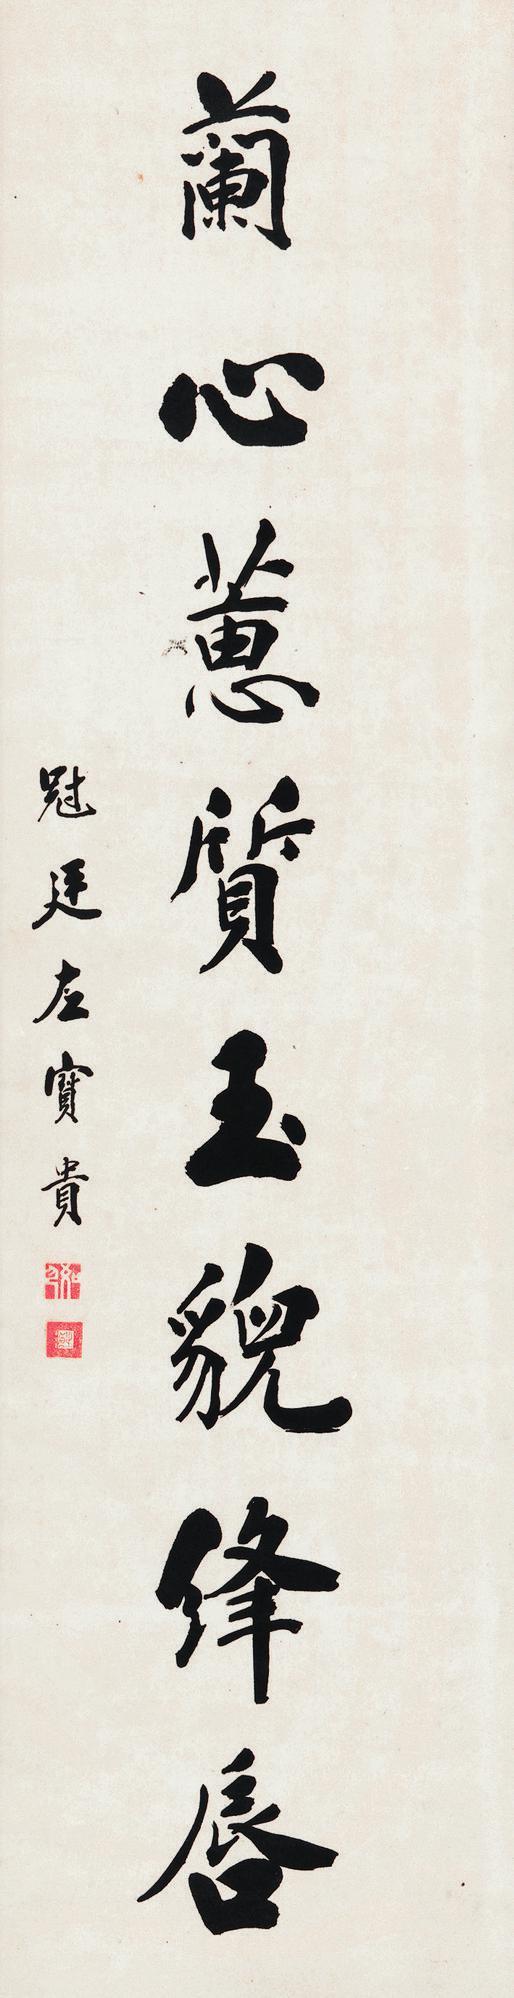 蘭心蕙質玉貌絳唇
冠廷左寶貴